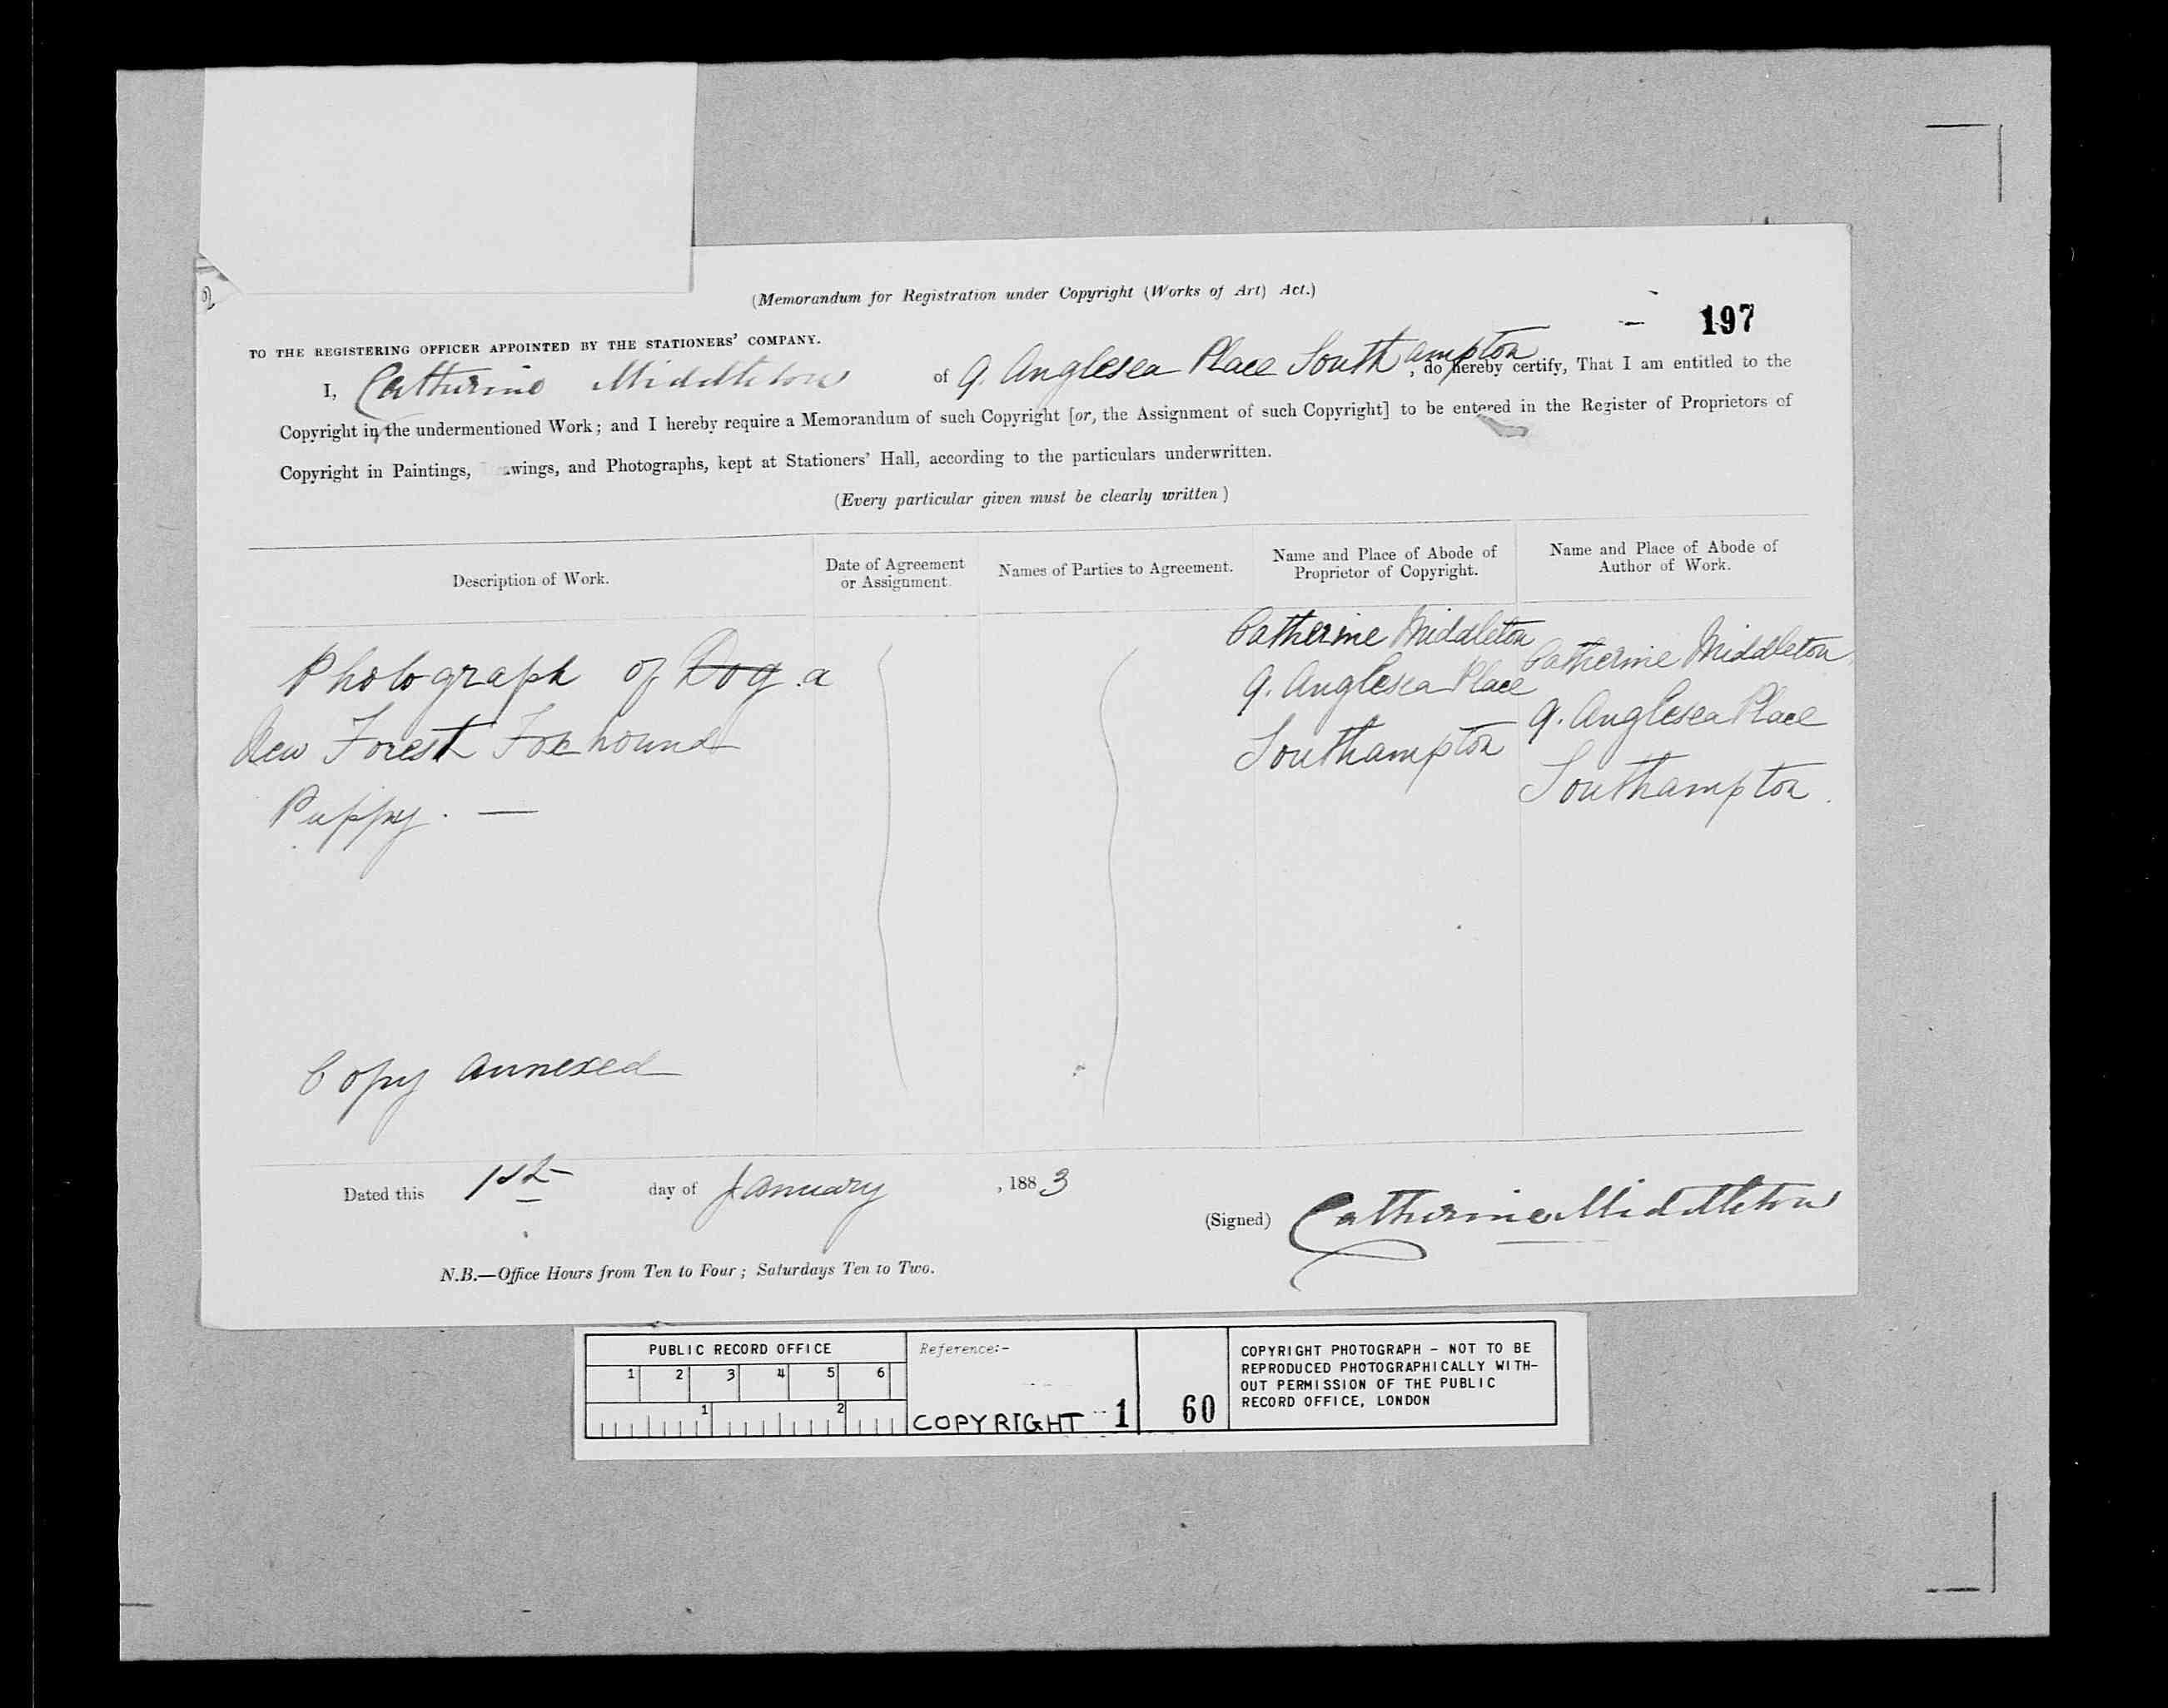 (Memorandum for Registration under Copyright (Works of Art) Act.)
197
TO THE REGISTERING OFFICER APPOINTED BY THE STATIONERS' COMPANY.
I, Catherine Middleton of 9. Anglesea Place Southampton, do hereby certify, That I am entitled to the
Copyright in the undermentioned Work; and I hereby require a Memorandum of such Copyright [or, the Assignment of such Copyright] to be entered in the Register of Proprietors of
Copyright in Paintings, awings, and Photographs, kept at Stationers' Hall, according to the particulars underwritten.
(Every particular given must be clearly written)
Description of Work.
Date of Agreement
or Assignment.
Names of Parties to Agreement.
Name and Place of Abode of
Proprietor of Copyright.
Name and Place of Abode of
Author of Work.
Photograph of Dog a
New Forest Foxhound
Puppy. —
Copy annexed
Catherine Middleton
9. Anglesea Place
Southampton
Catherine Middleton
9. Anglesea Place
Southampton.
Dated this 1st day of January, 1883
(Signed) Catherine Middleton
N.B.—Office Hours from Ten to Four; Saturdays Ten to Two.
PUBLIC RECORD OFFICE
1 2 3 4 5 6
1 2
Reference:-
COPYRIGHT 1 60
COPYRIGHT PHOTOGRAPH - NOT TO BE
REPRODUCED PHOTOGRAPHICALLY WITH-
OUT PERMISSION OF THE PUBLIC
RECORD OFFICE, LONDON